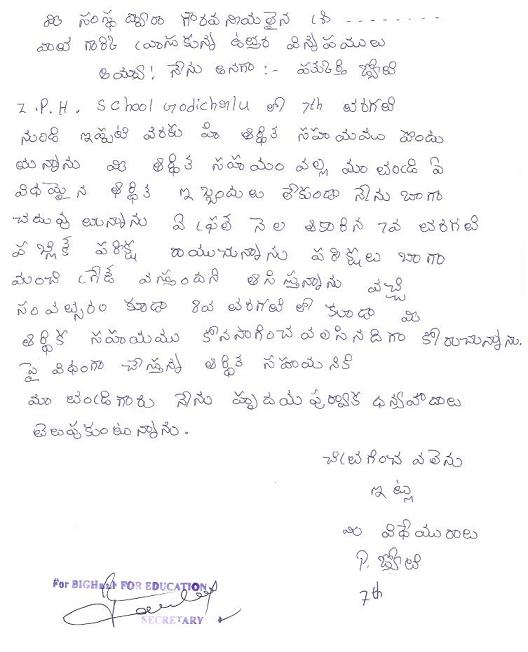 మి సంస్థ ద్వారా గౌరవనీయులైన శ్రీ - - - - - - - -
వాల గారికి చాసుకున్న ఉత్తర విన్నపములు
అయ్యా! నేను అనగా :- పమిడి జ్యోతి
Z.P.H. School Godicherlu లో 7th తరగతి
నుండి ఇప్పటి వరకు మీ ఆర్థిత సహాయము పొందు
యున్నాను మి ఆర్థిత సహాయం వల్ల మా తండి ఏ
విధమైన ఆర్థిత ఇబ్బందులు లేకుండా నేను బాగా
చదువు తున్నాను ఏ ప్రిల్ నెల ఆకారిన 7వ తరగతి
పబ్లిక్ పరిక్ష రాయుచున్నాను పరిక్షలు బాగా
మంచి గ్రేడే వస్తుందని ఆసిస్తున్నాను వచ్చే
సంవత్సరం కూడా 8వ తరగతి లో కూడా మి
ఆర్థిక సహాయము కొనసాగించ వలసినదిగా కోరుచున్నాను.
పై విధంగా చేస్తున్న ఆర్థిత సహాయ నికి
మా తండిగారు నేను హృదయ పుర్వాక ధన్వవాదాలు
తెలుపుకుంటున్నాను.
చితగించ వలెను
ఇట్లు
మి విధేయురాలు
P. జ్యోతి
7th
For BIGH FOR EDUCATION
SECRETARY